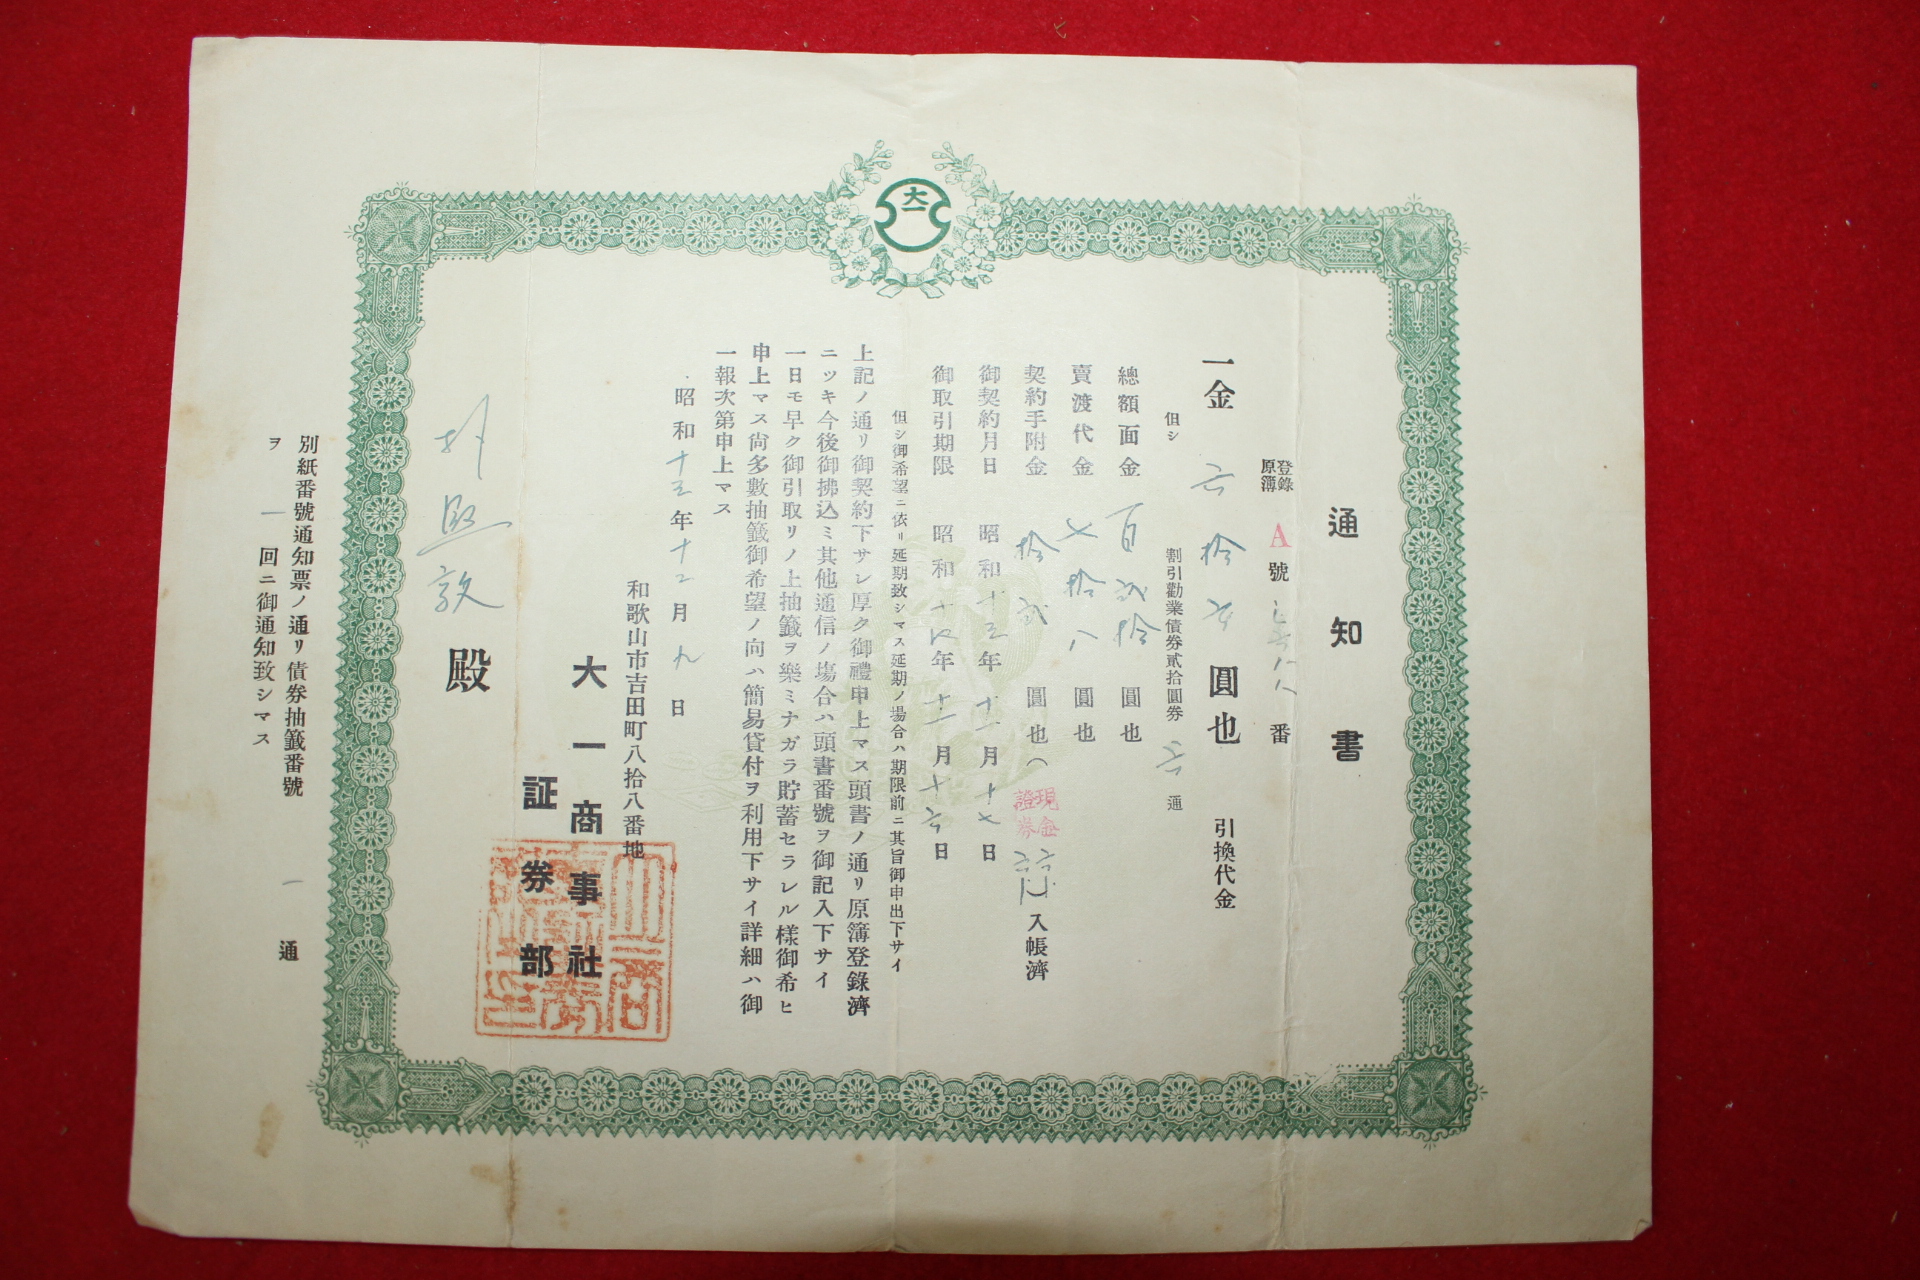 大一
通知書
登錄原簿 A號 番
一金 六拾六圓也 引換代金
但シ 割引勸業債券貳拾圓券 六 通
總額面金 百貳拾 圓也
賣渡代金 七拾八 圓也
契約手附金 拾貳 圓也( 現金 證券 入帳濟
御契約月日 昭和十三年十一月十七日
御取引期限 昭和十四年十一月十六日
但シ御希望ニ依リ延期致シマス延期ノ場合ハ期限前ニ其旨御申出下サイ
上記ノ通リ御契約下サレ厚ク御禮申上マス頭書ノ通リ原簿登錄濟
ニツキ今後御拂込ミ其他通信ノ場合ハ頭書番號ヲ御記入下サイ
一日モ早ク御引取リノ上抽籤ヲ樂ミナガラ貯蓄セラレル樣御希ヒ
申上マス尙多數抽籤御希望ノ向ハ簡易貸付ヲ利用下サイ詳細ハ御
一報次第申上マス
昭和十三年十二月九日
和歌山市吉田町八拾八番地
大一商事社
証券部
殿
別紙番號通知票ノ通リ債券抽籤番號 一 通
ヲ 一 回ニ御通知致シマス